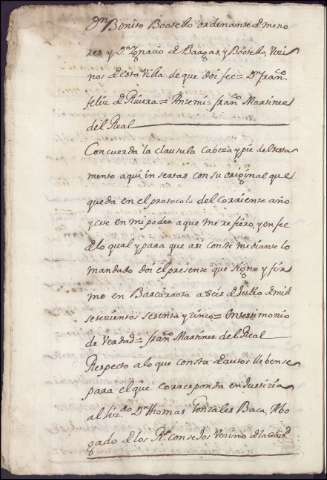 Dn Bonito Bootello ordenante de meno
res y Dn Ignacio de Bargas y Bootello Veci
nos de esta Villa de que doi fee = Dn Fran.
feliz de Rivera = Antemi = Fran. Martinez
del Real
Concuerda la clausula Cabeza y pie del testa
mento aqui insertas con su original que
queda en el protocolo del corriente año
y en mi poder a que me refiero, y en fee
de lo qual y para que asi conste mediante lo
mandado doi el presente que signo y fir
mo en Barcarota a seis de Julio de mil
setecientos sesenta y cinco = En testimonio
de Verdad = Fran. Martinez del Real
Respecto a lo que consta de autos llebense
para el que corresponda en Justicia
al Lizdo Dn Thomas Gonzales Baca Abo
gado de los Rs. Consejos Vecino de la Ciud